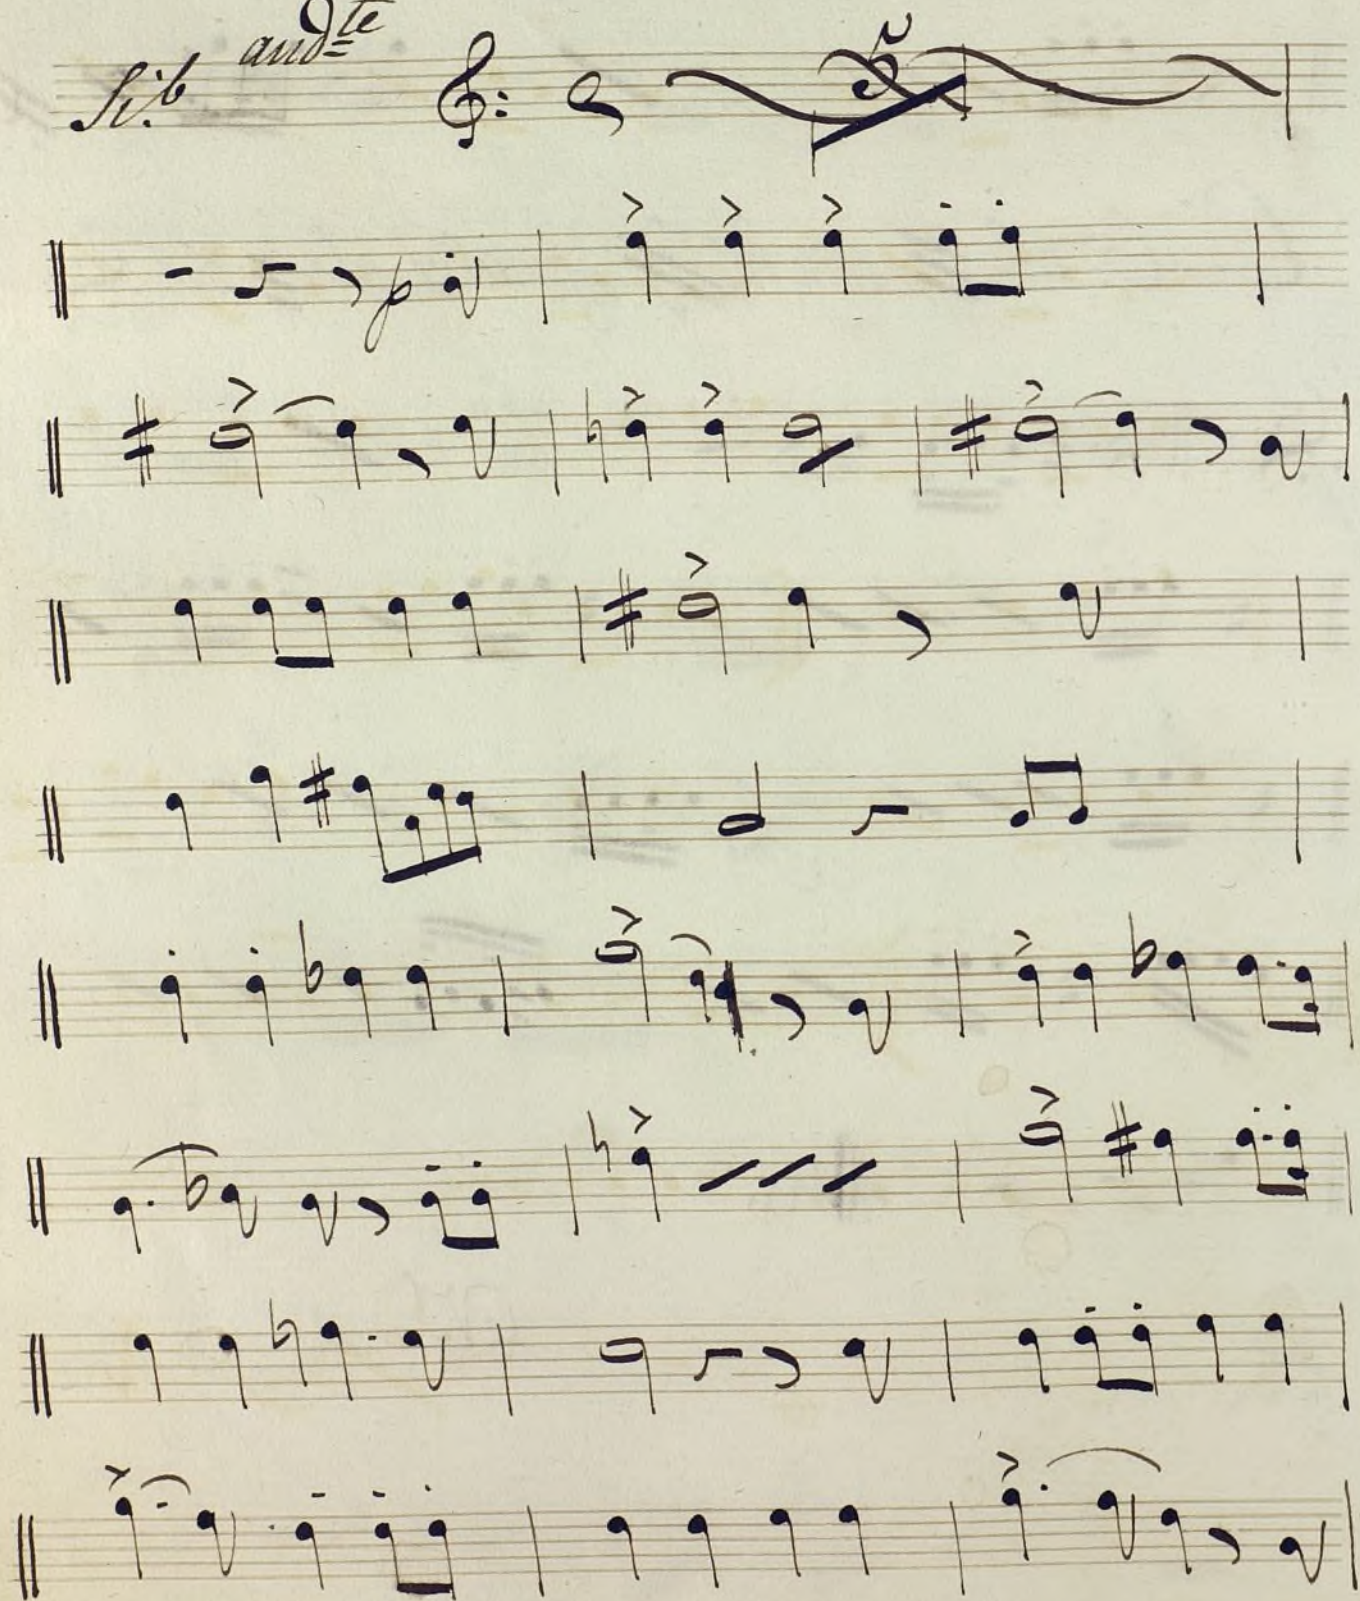 Si.b andte
5
p